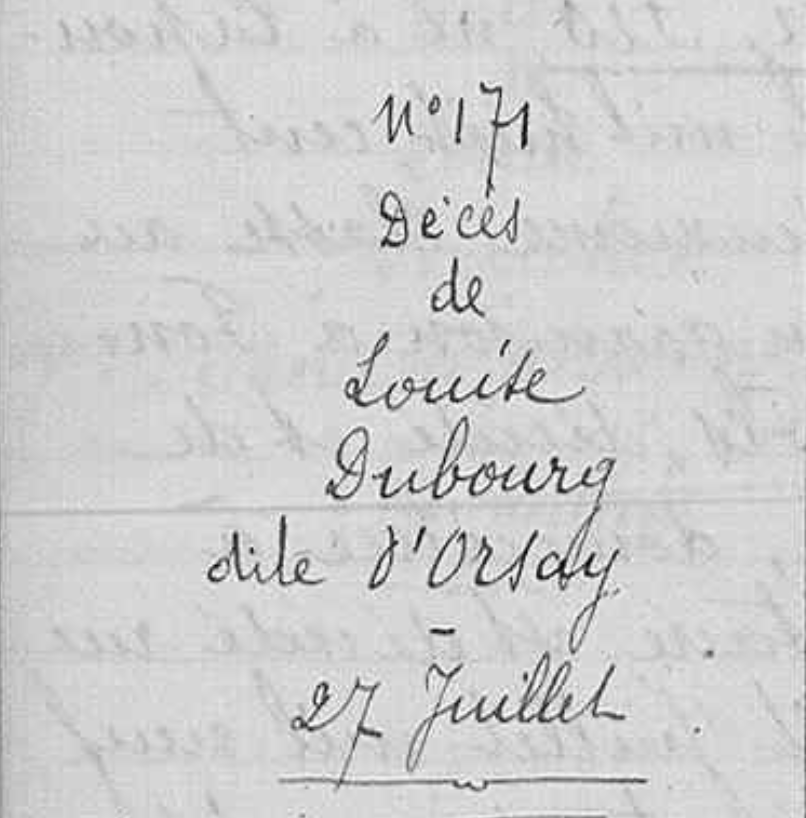 N° 171
Décès
de
Louise
Dubourg
dite d'Orsay
-
27 Juillet